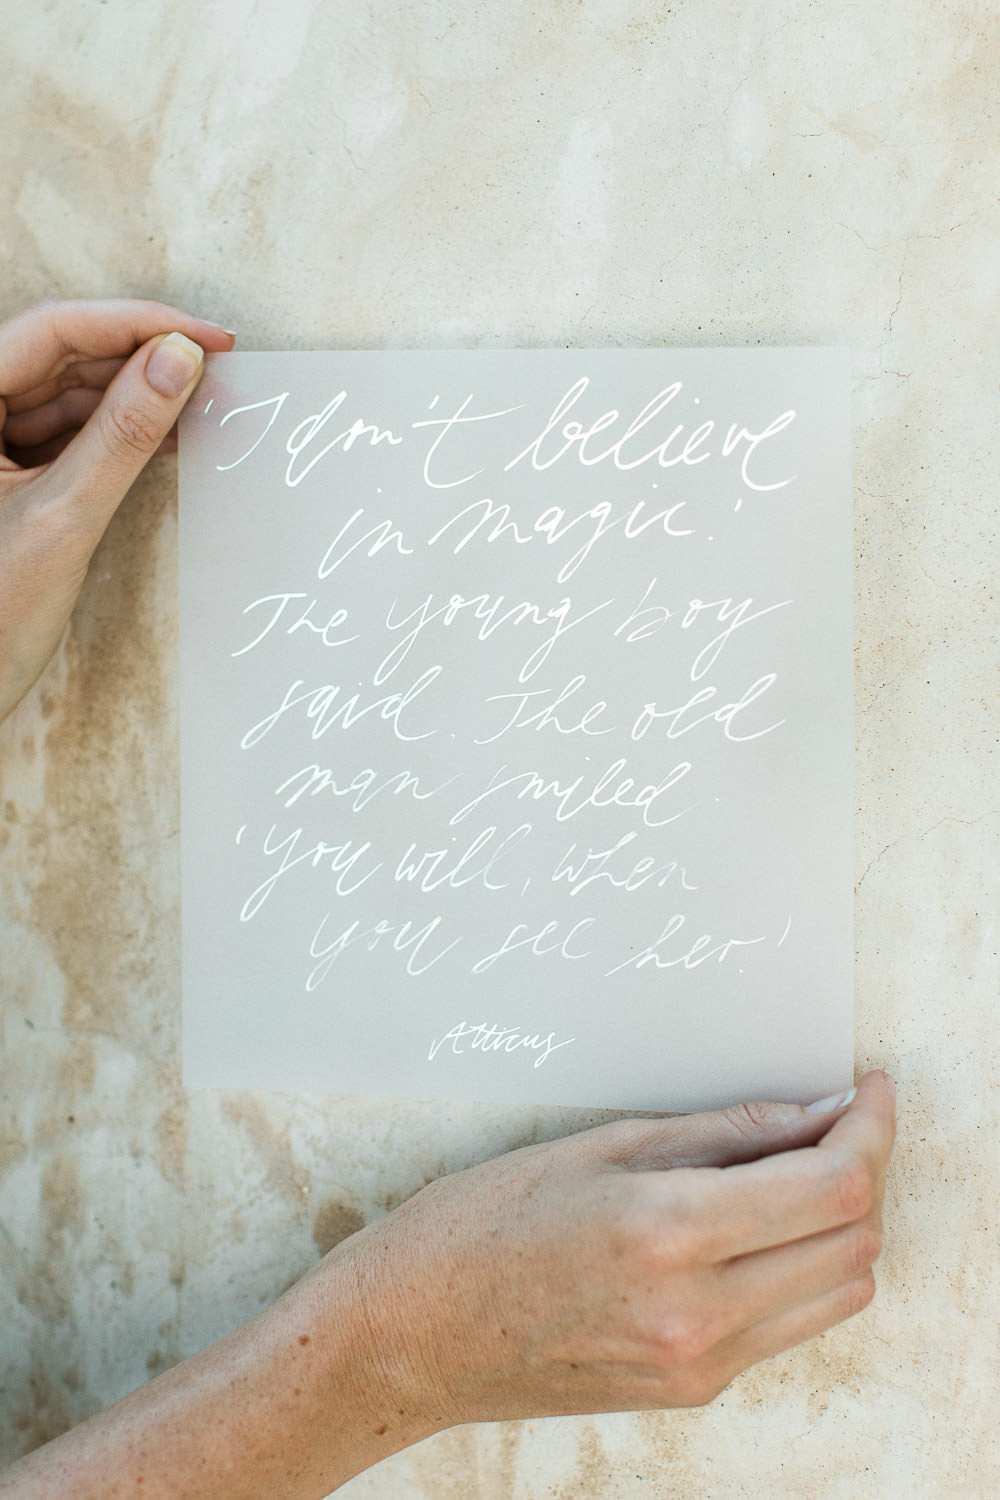 'I don't believe
in magic.'
The young boy
said. The old
man smiled.
'You will, when
you see her.'
Atticus